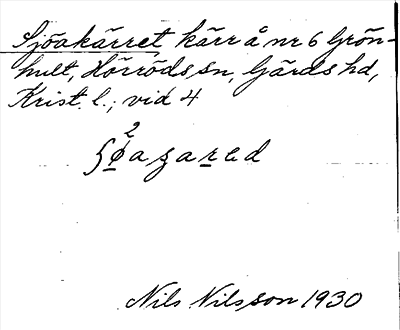 Sjöakärret kärr å nr 6 Grön-
hult, Hörröds sn, Gärds hd,
Krist. l.; vid 4
Nils Nilsson 1930